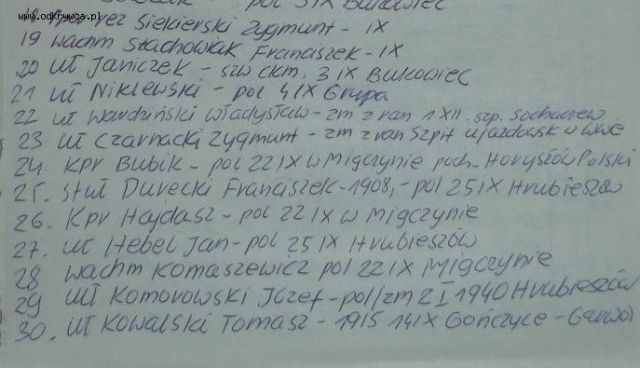 www.odkrywca.pl
pol 3 IX Bukowiec
rez Siekierski Zygmunt - IX
19 wachm Stachowiak Franciszek - IX
20 uł Janiczek - szw ckm. 3 IX Bukowiec
21 uł Niklewski - pol 4 IX Grupa
22 uł Wardziński Władysław - zm z ran 1 XII. szp. Sochaczew
23 uł Czarnacki Zygmunt - zm z ran Szpit Ujazdowsk w Wwie
24. Kpr Bubik - pol 22 IX w Migczynie poch - Horyszów Polski
25. stuł Durecki Franciszek - 1908, - pol 25 IX Hrubieszów
26. Kpr Hajdasz - pol 22 IX w Migczynie
27. uł Hebel Jan - pol 25 IX Hrubieszów
28 wachm Komaszewicz pol 22 IX Migczynie
29 uł Komorowski Józef - pol/zm 2 I 1940 Hrubieszów
30. uł Kowalski Tomasz - 1915 14 IX Gończyce - Garwol